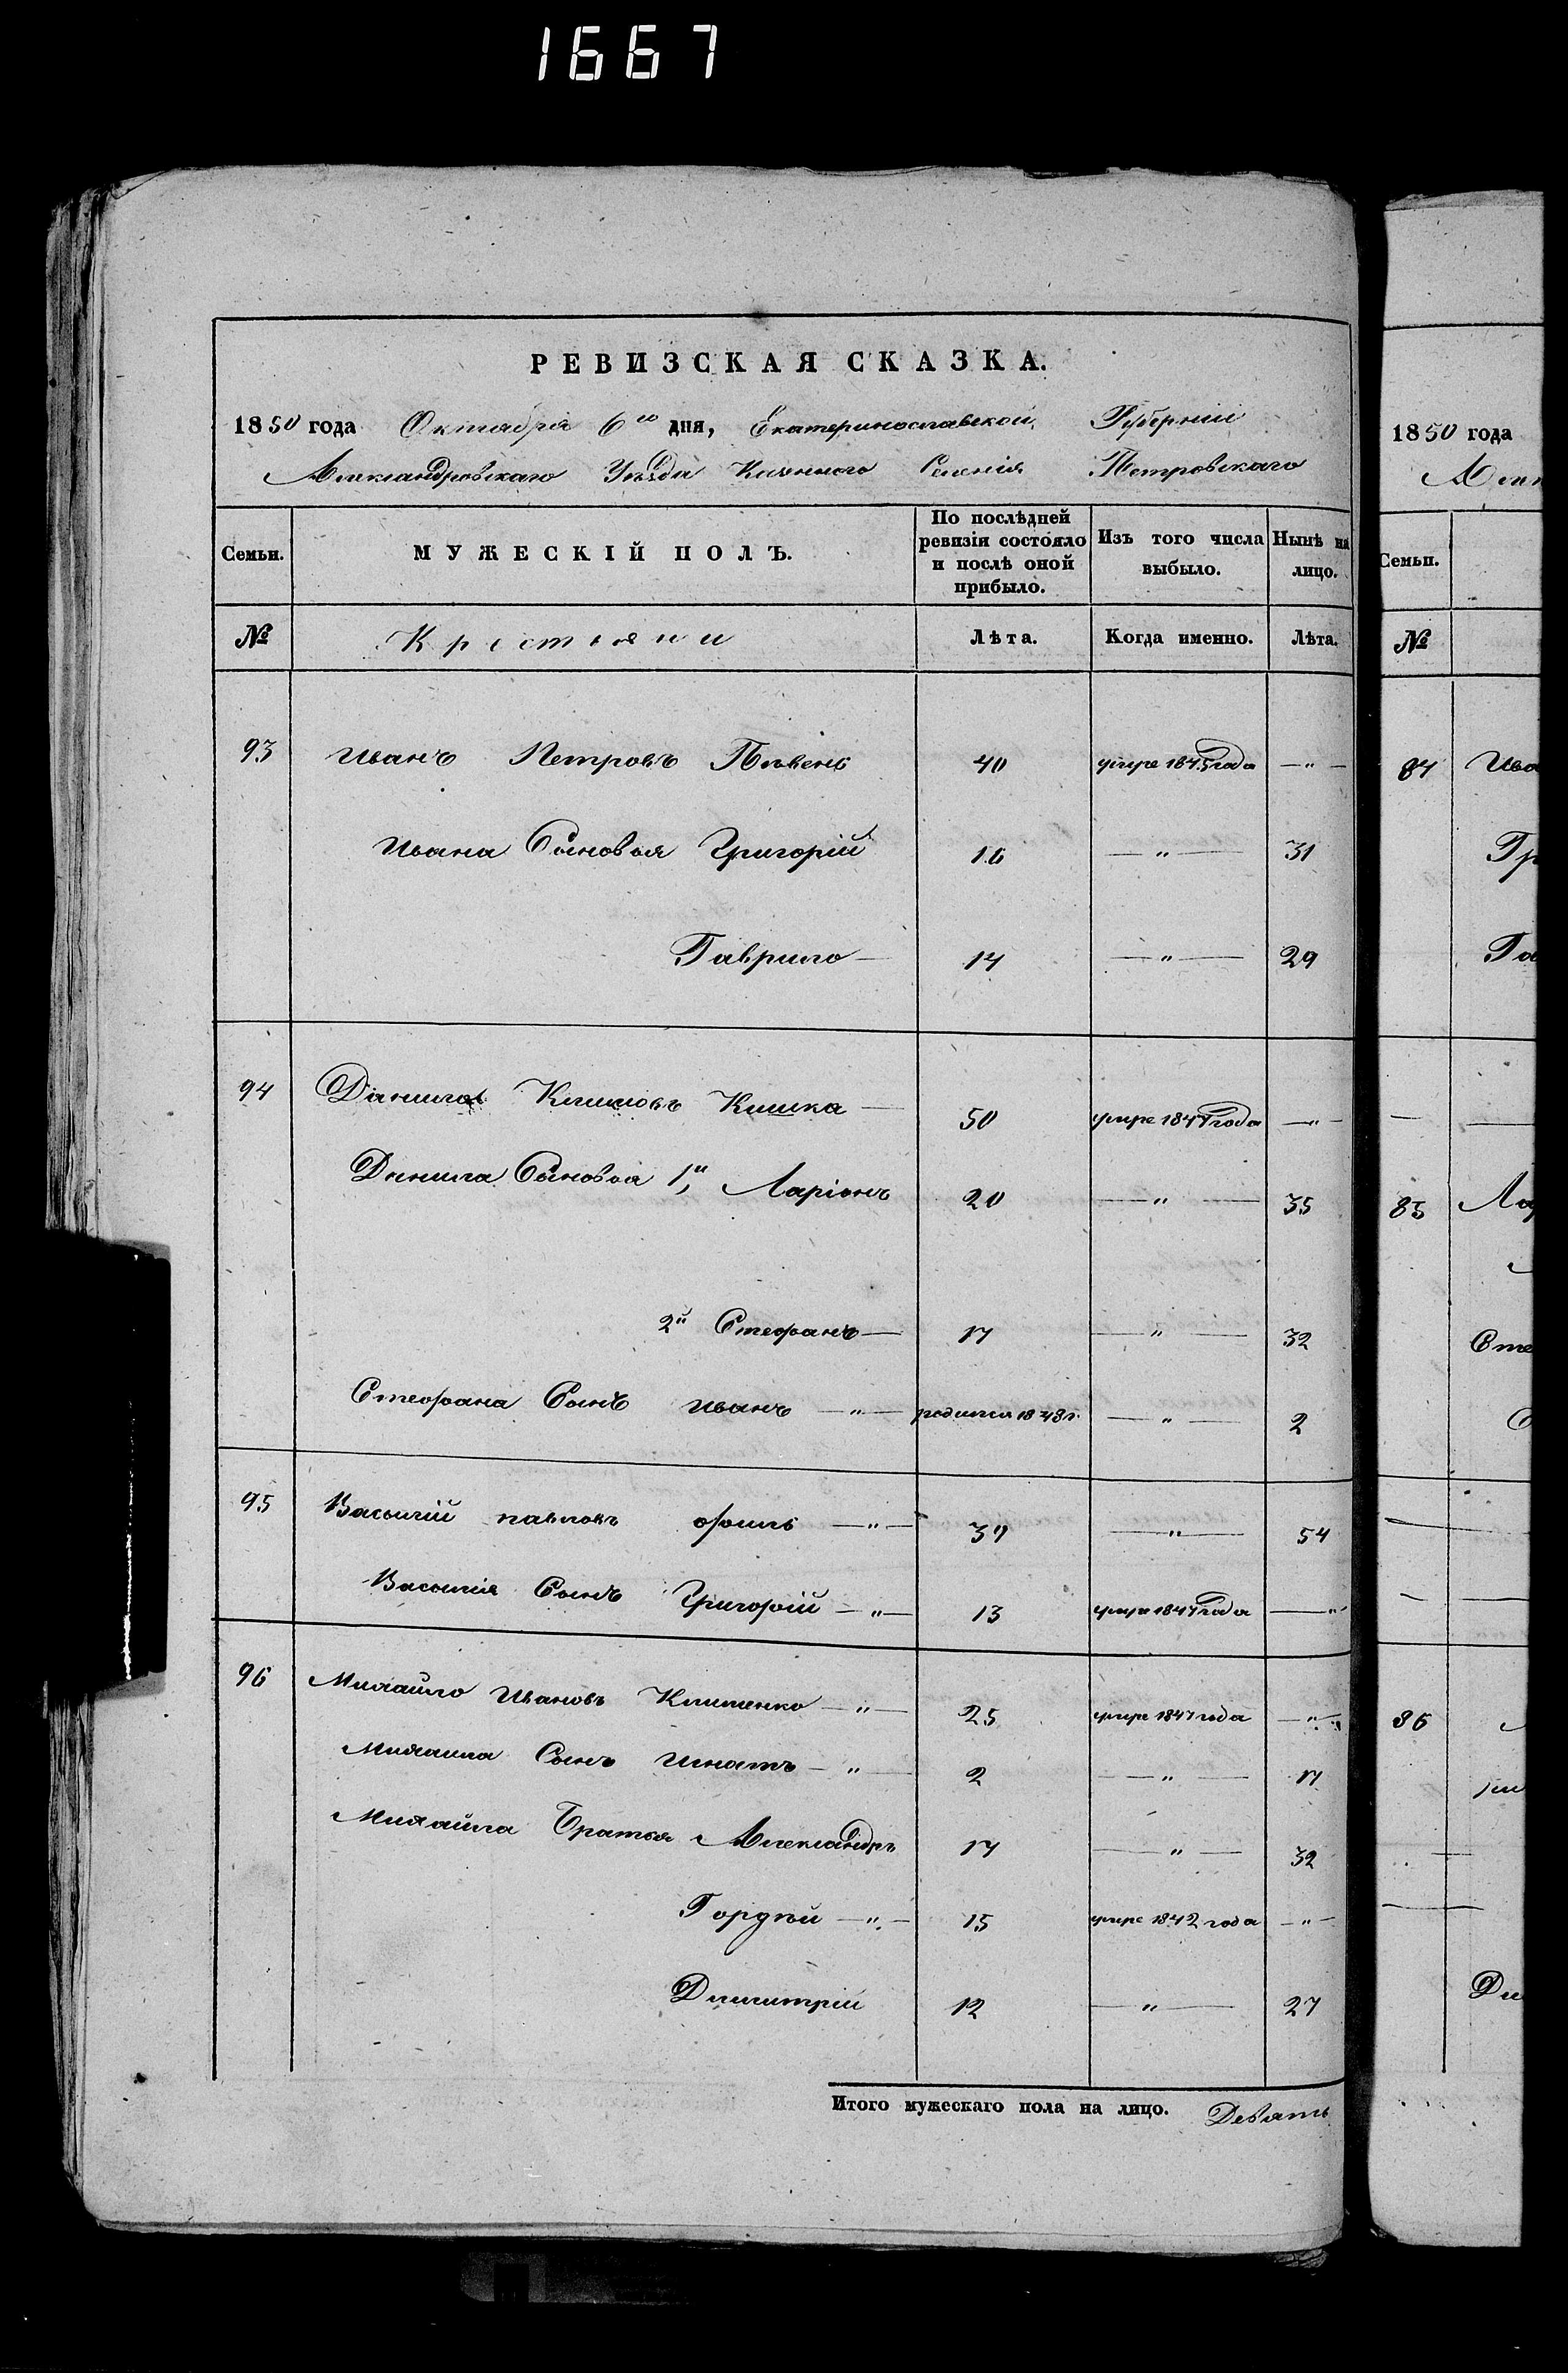 1667
РЕВИЗСКАЯ СКАЗКА.
1850 года Октября 6го дня, Екатеринославской Губерніи
Александровскаго Уѣзда Казенного Селенія Петровскаго
Семьи. МУЖЕСКІЙ ПОЛЪ. По послѣдней ревизія состояло и послѣ оной прибыло. Изъ того числа выбыло. Нынѣ на лицо.
№ Крестьяни Лѣта. Когда именно. Лѣта.
93 Иванъ Петровъ Пѣвень 40 умре 1845 года —"—
Ивана Сыновья Григорій 16 —"— 31
Гаврило — 14 —"— 29
94 Данило Климовъ Кишка — 50 умре 1847 года —"—
Данила Сыновья 1й Ларіонъ 20 —"— 35
2й Стефанъ — 17 —"— 32
Стефана Сынъ Иванъ —"— родился 1848 г. —"— 2
95 Василій павловъ —"— 39 —"— 54
Василія Сынъ Григорій —"— 13 умре 1847 года —"—
96 Михайло Ивановъ Клименко —"— 25 умре 1847 года —"—
Михаила Сынъ Игнатъ —"— 2 —"— 17
Михайла Братья Александръ 17 —"— 32
Гордѣй —"— 15 умре 1842 года —"—
Димитрій 12 —"— 27
Итого мужескаго пола на лицо. Девять
1850 года
Семьи.
№
84 Ива
Гр
Гав
85 Лар
Сте
86
Ди